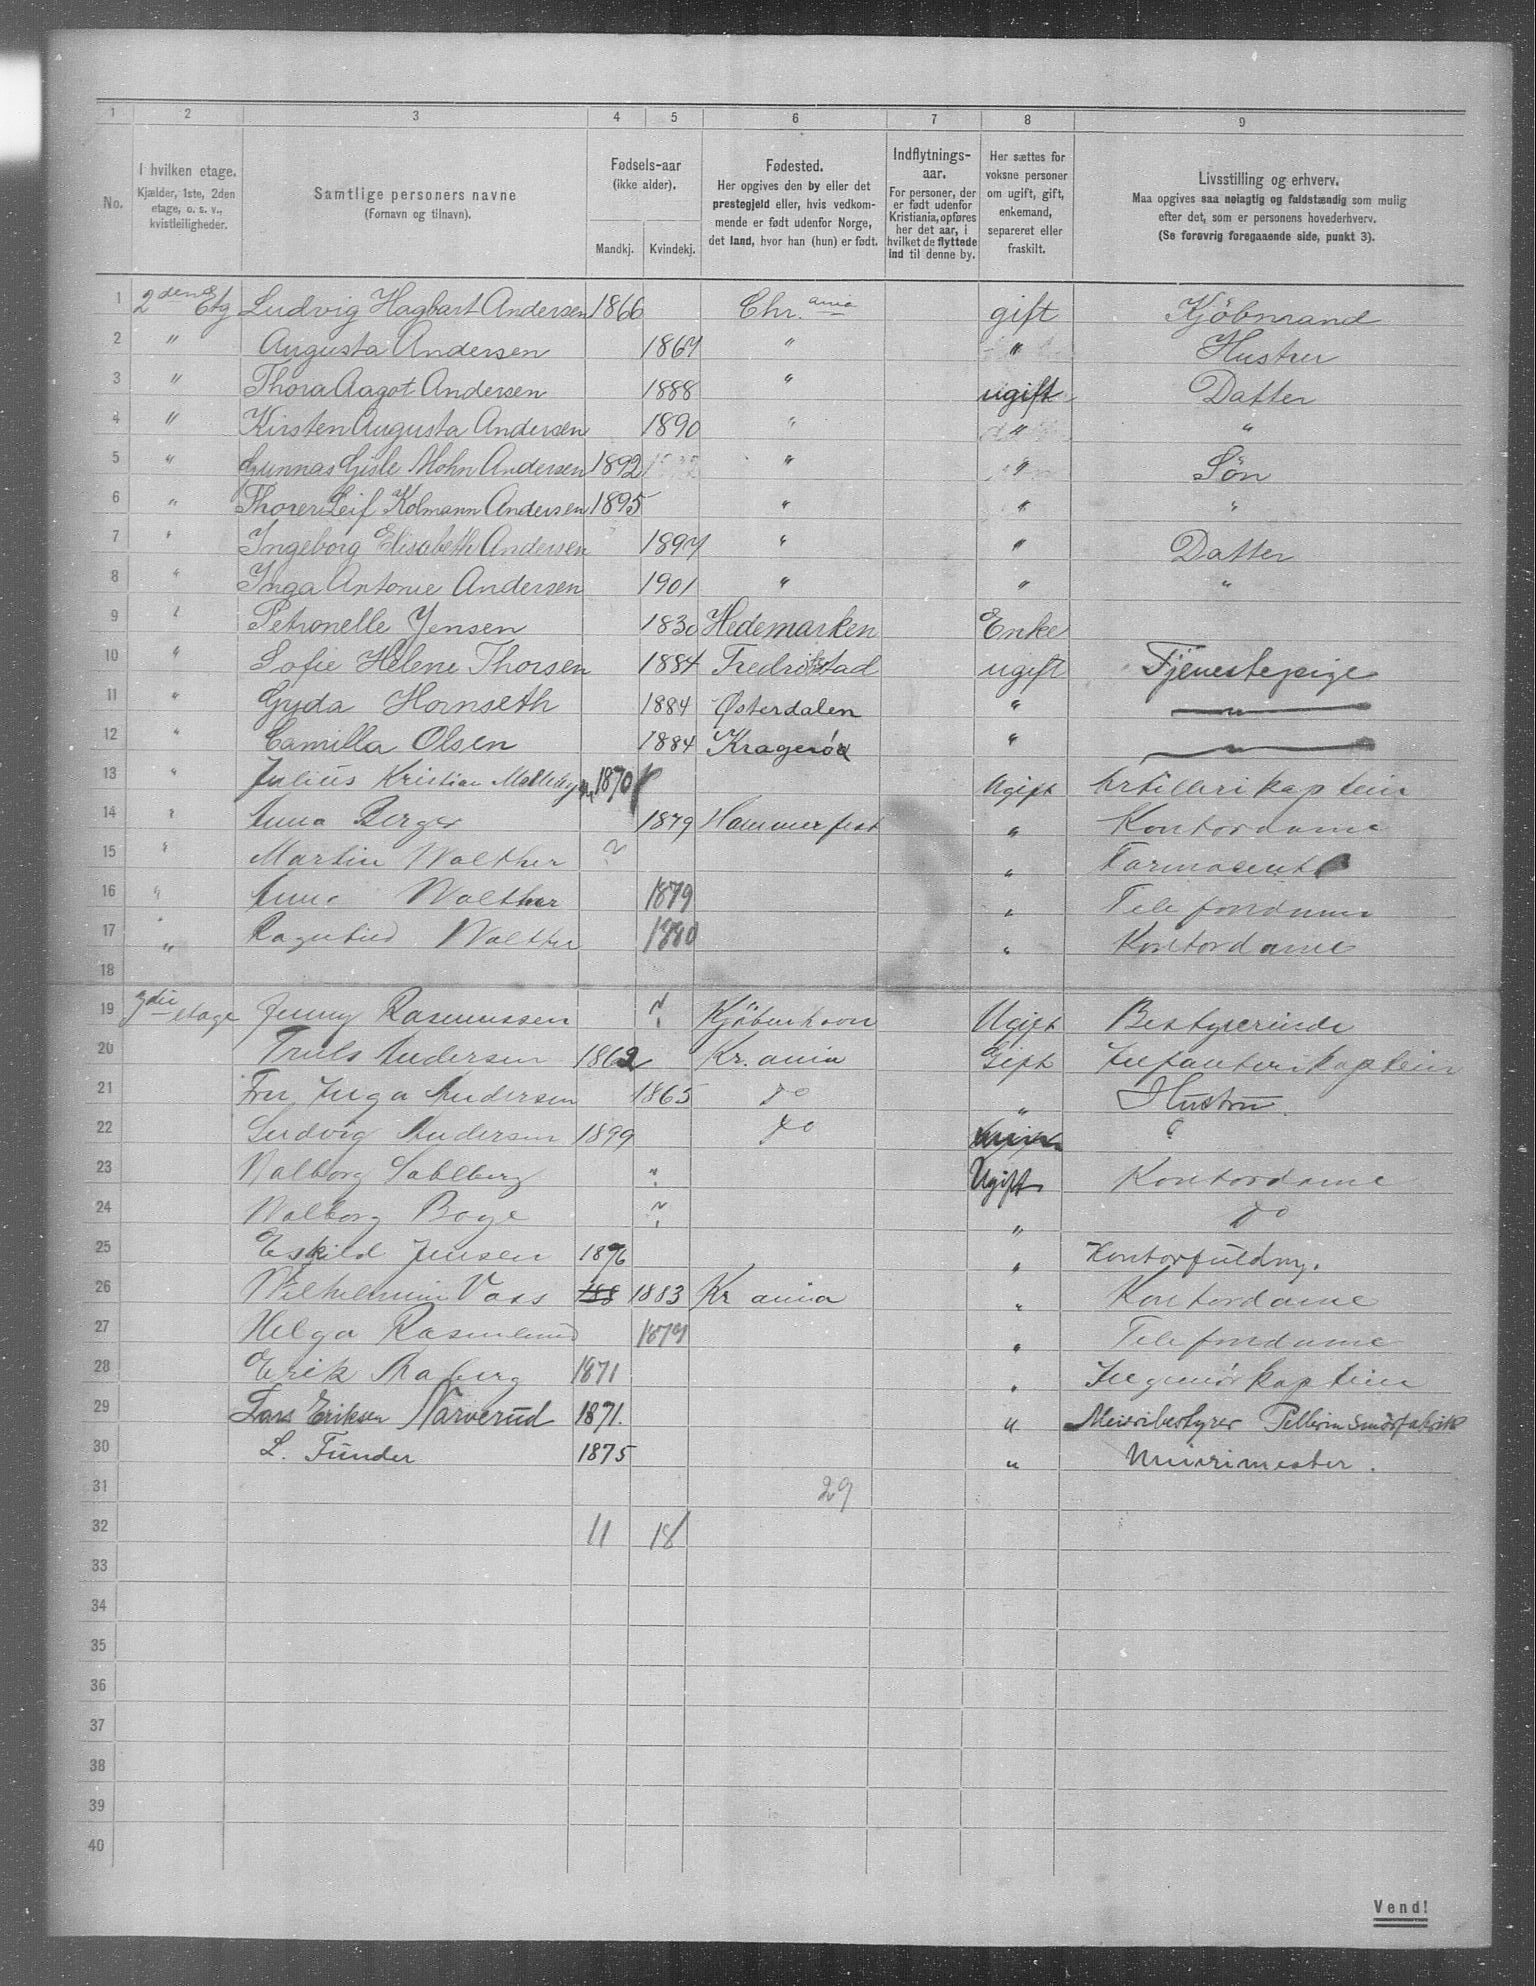 1 2 3 4 5 6 7 8 9
No.
I hvilken etage.
Kjælder, 1ste, 2den
etage, o. s. v.,
kvistleiligheder.
Samtlige personers navne
(Fornavn og tilnavn).
Fødsels-aar
(ikke alder).
Mandkj. Kvindekj.
Fødested.
Her opgives den by eller det
prestegjeld eller, hvis vedkom-
mende er født udenfor Norge,
det land, hvor han (hun) er født.
Indflytnings-
aar.
For personer, der
er født udenfor
Kristiania, opføres
her det aar, i
hvilket de flyttede
ind til denne by.
Her sættes for
voksne personer
om ugift, gift,
enkemand,
separeret eller
fraskilt.
Livsstilling og erhverv.
Maa opgives saa nøiagtig og fuldstændig som mulig
efter det, som er personens hovederhverv.
(Se forøvrig foregaaende side, punkt 3).
1 2den Etg Ludvig Hagbart Andersen 1866 Chr.ania gift Kjöbmand
2 " Augusta Andersen 1867 " " Hustru
3 " Thora Aagot Andersen 1888 " ugift Datter
4 " Kirsten Augusta Andersen 1890 " " "
5 " Gunnar Gisle Mohn Andersen 1892 " " Sön
6 " Thorer Leif Kolmann Andersen 1895 " " "
7 " Ingeborg Elisabeth Andersen 1897 " " Datter
8 " Inga Antonie Andersen 1901 " " "
9 " Petronelle Jensen 1830 Hedemarken Enke
10 " Sofie Helene Thorsen 1884 Fredrikstad ugift Tjenestepige
11 " Gyda Hornseth 1884 Østerdalen " "
12 " Camilla Olsen 1884 Kragerö "
13 " Julius Kristian 1870 Ugift Artillerikaptein
14 " Anna Berger 1879 Hammerfest " Kontordame
15 " Martin Walther ? " Farmaceut
16 " Anna Walther 1879 " Telefondame
17 " Ragnhild Walther 1880 " Kontordame
18 "
19 3die etage Jenny Rasmussen ? Kjöbenhavn Ugift Bestyrerinde
20 Truls Andersen 1862 Kr.ania Gift Infanterikaptein
21 Fru Inga Andersen 1865 do " Hustru.
22 Ludvig Andersen 1899 do
23 Valborg Sahlberg ? Ugift Kontordame
24 Valborg Boye ? " do
25 Eskild Jensen 1876 " Kontorfuldm.
26 Wilhelmine Vass 188 1883 Kr ania " Kontordame
27 Helga 1877 " Telefondame
28 Erik Raberg 1871 " Ingeniörkaptein
29 Lars Eriksen Narverud 1871. " Meieribestyrer Pellerin Smörfabrik
30 L. Funder 1875 " Meierimester.
31 29
32 11 18
33
34
35
36
37
38
39
40
Vend!